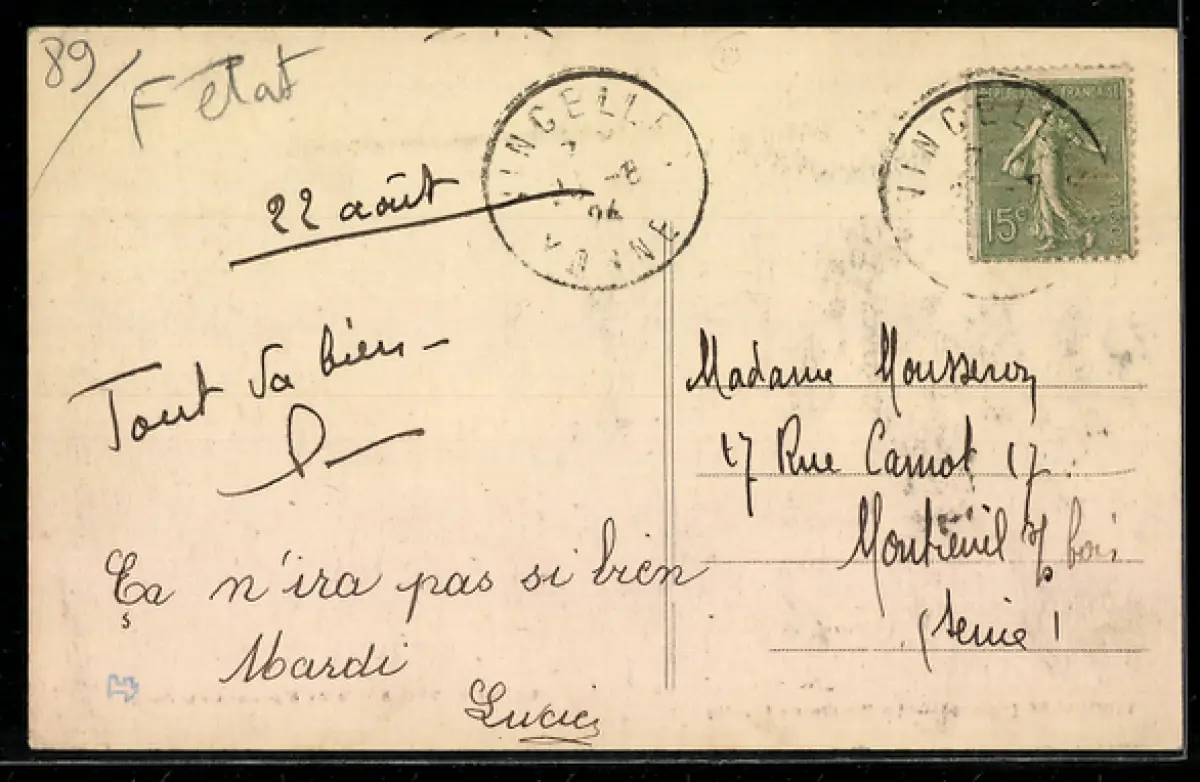 89/
F etat
22 août
VINCELLE
-8
24
YONNE
VINCELL
REPUBLIQUE FRANÇAISE
15c
POSTES
Tout va bien -
Ça n'ira pas si bien
Mardi
Lucie
Madame Mousseron
17 Rue Carnot 17.
Montreuil s/ bois
(Seine)